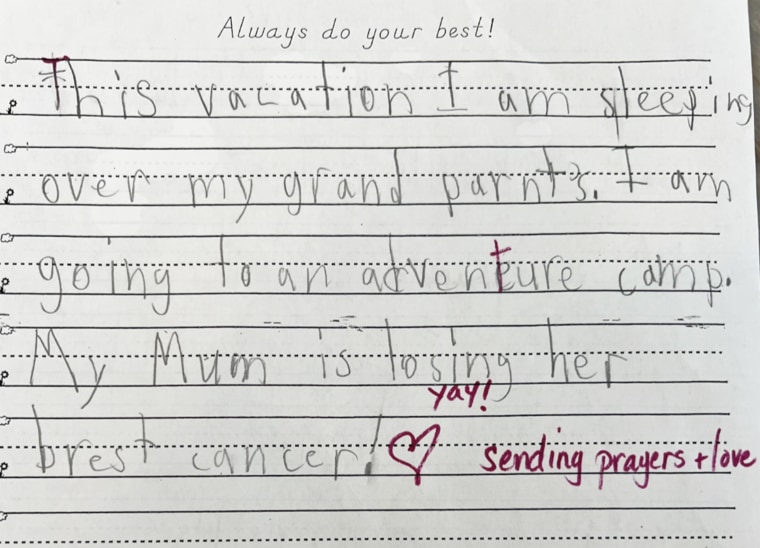 Always do your best!
This vacation I am sleeping
over my grand parnt's. I am
going to an adventure camp.
My Mum is losing her
yay!
brest cancer! ♡ sending prayers + love